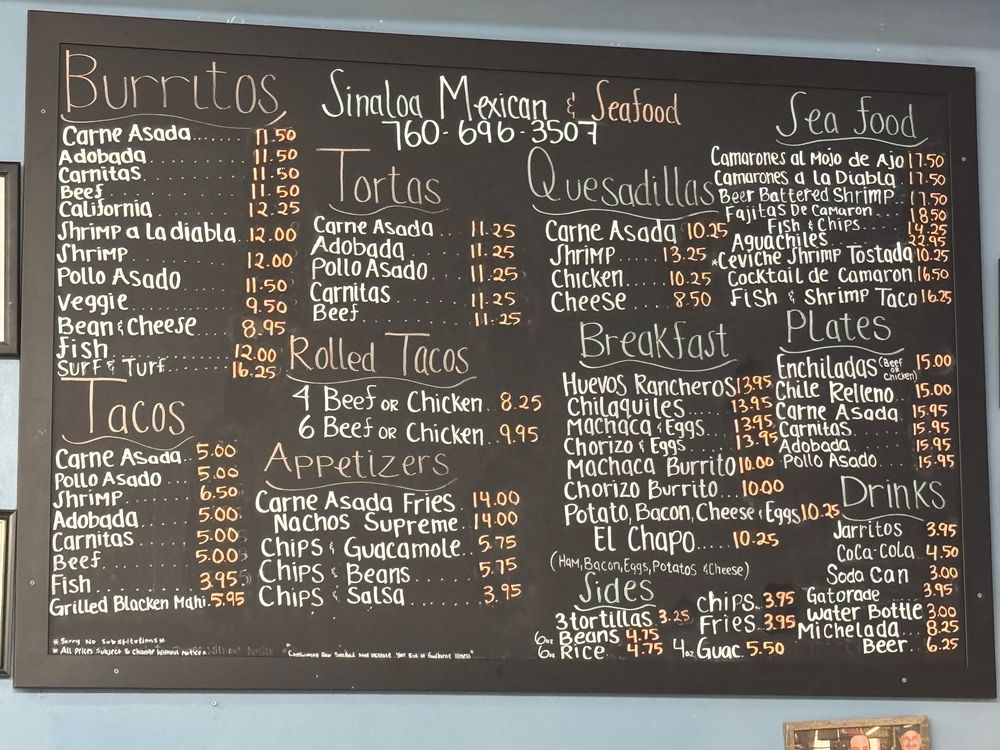 Sinaloa Mexican & Seafood
760-696-3507
Burritos
Carne Asada...... 11.50
Adobada.......... 11.50
Carnitas.......... 11.50
Beef.......... 11.50
California.......... 12.25
Shrimp a la diabla. 12.00
Shrimp.......... 12.00
Pollo Asado...... 11.50
Veggie.......... 9.50
Bean & Cheese..... 8.95
fish.......... 12.00
Surf & Turf...... 16.25
Tacos
Carne Asada.. 5.00
Pollo Asado.... 5.00
Shrimp...... 6.50
Adobada...... 5.00
Carnitas...... 5.00
Beef...... 5.00
Fish...... 3.95
Grilled Blacken Mahi. 5.95
* Sorry No Substitutions *
* All Prices Subject to Change Without Notice
Tortas
Carne Asada.... 11.25
Adobada...... 11.25
Pollo Asado.... 11.25
Carnitas...... 11.25
Beef...... 11.25
Rolled Tacos
4 Beef OR Chicken.. 8.25
6 Beef OR Chicken.. 9.95
Appetizers
Carne Asada Fries. 14.00
Nachos Supreme. 14.00
Chips & Guacamole.. 5.75
Chips & Beans...... 5.75
Chips & Salsa...... 3.95
Quesadillas
Carne Asada 10.25
Shrimp...... 13.25
Chicken..... 10.25
Cheese..... 8.50
Breakfast
Huevos Rancheros 13.95
Chilaquiles..... 13.95
Machaca & Eggs... 13.95
Chorizo & Eggs.... 13.95
Machaca Burrito 10.00
Chorizo Burrito... 10.00
Potato, Bacon, Cheese & Eggs 10.25
El Chapo..... 10.25
(Ham, Bacon, Eggs, Potatos & Cheese)
Sides
3 tortillas 3.25
6oz Beans 4.75
6oz Rice 4.75
chips. 3.95
Fries. 3.95
4oz Guac. 5.50
Sea food
Camarones al Mojo de Ajo 17.50
Camarones a la Diabla. 17.50
Beer Battered Shrimp. 17.50
Fajitas De Camaron... 18.50
Fish & Chips.... 14.25
Aguachiles 22.95
*Ceviche Shrimp Tostada 10.25
Cocktail de Camaron. 16.50
Fish & Shrimp Taco 16.25
Plates
Enchiladas (Beef or chicken) 15.00
Chile Relleno.. 15.00
Carne Asada.. 15.95
Carnitas...... 15.95
Adobada..... 15.95
Pollo Asado.... 15.95
Drinks
Jarritos 3.95
Coca-cola. 4.50
Soda Can. 3.00
Gatorade... 3.95
Water Bottle 3.00
Michelada.. 8.25
Beer.. 6.25